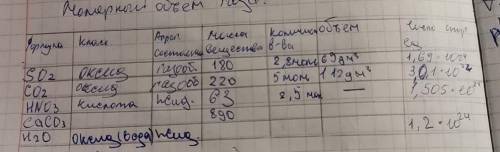 Молярный объем газа.
Формула Класс Агрег состояние Масса вещества количес в-ва объем число стр ед
SO2 оксид газооб 180 2,8 мол 69 дм³
CO2 оксид газооб 220 5 мол 112 дм³ 3,01·10²⁴
HNO3 кислота жид. 63 2,5 мол — 1,505·10²⁴
CaCO3 890
H2O оксид (вода) жид. 1,2·10²⁴